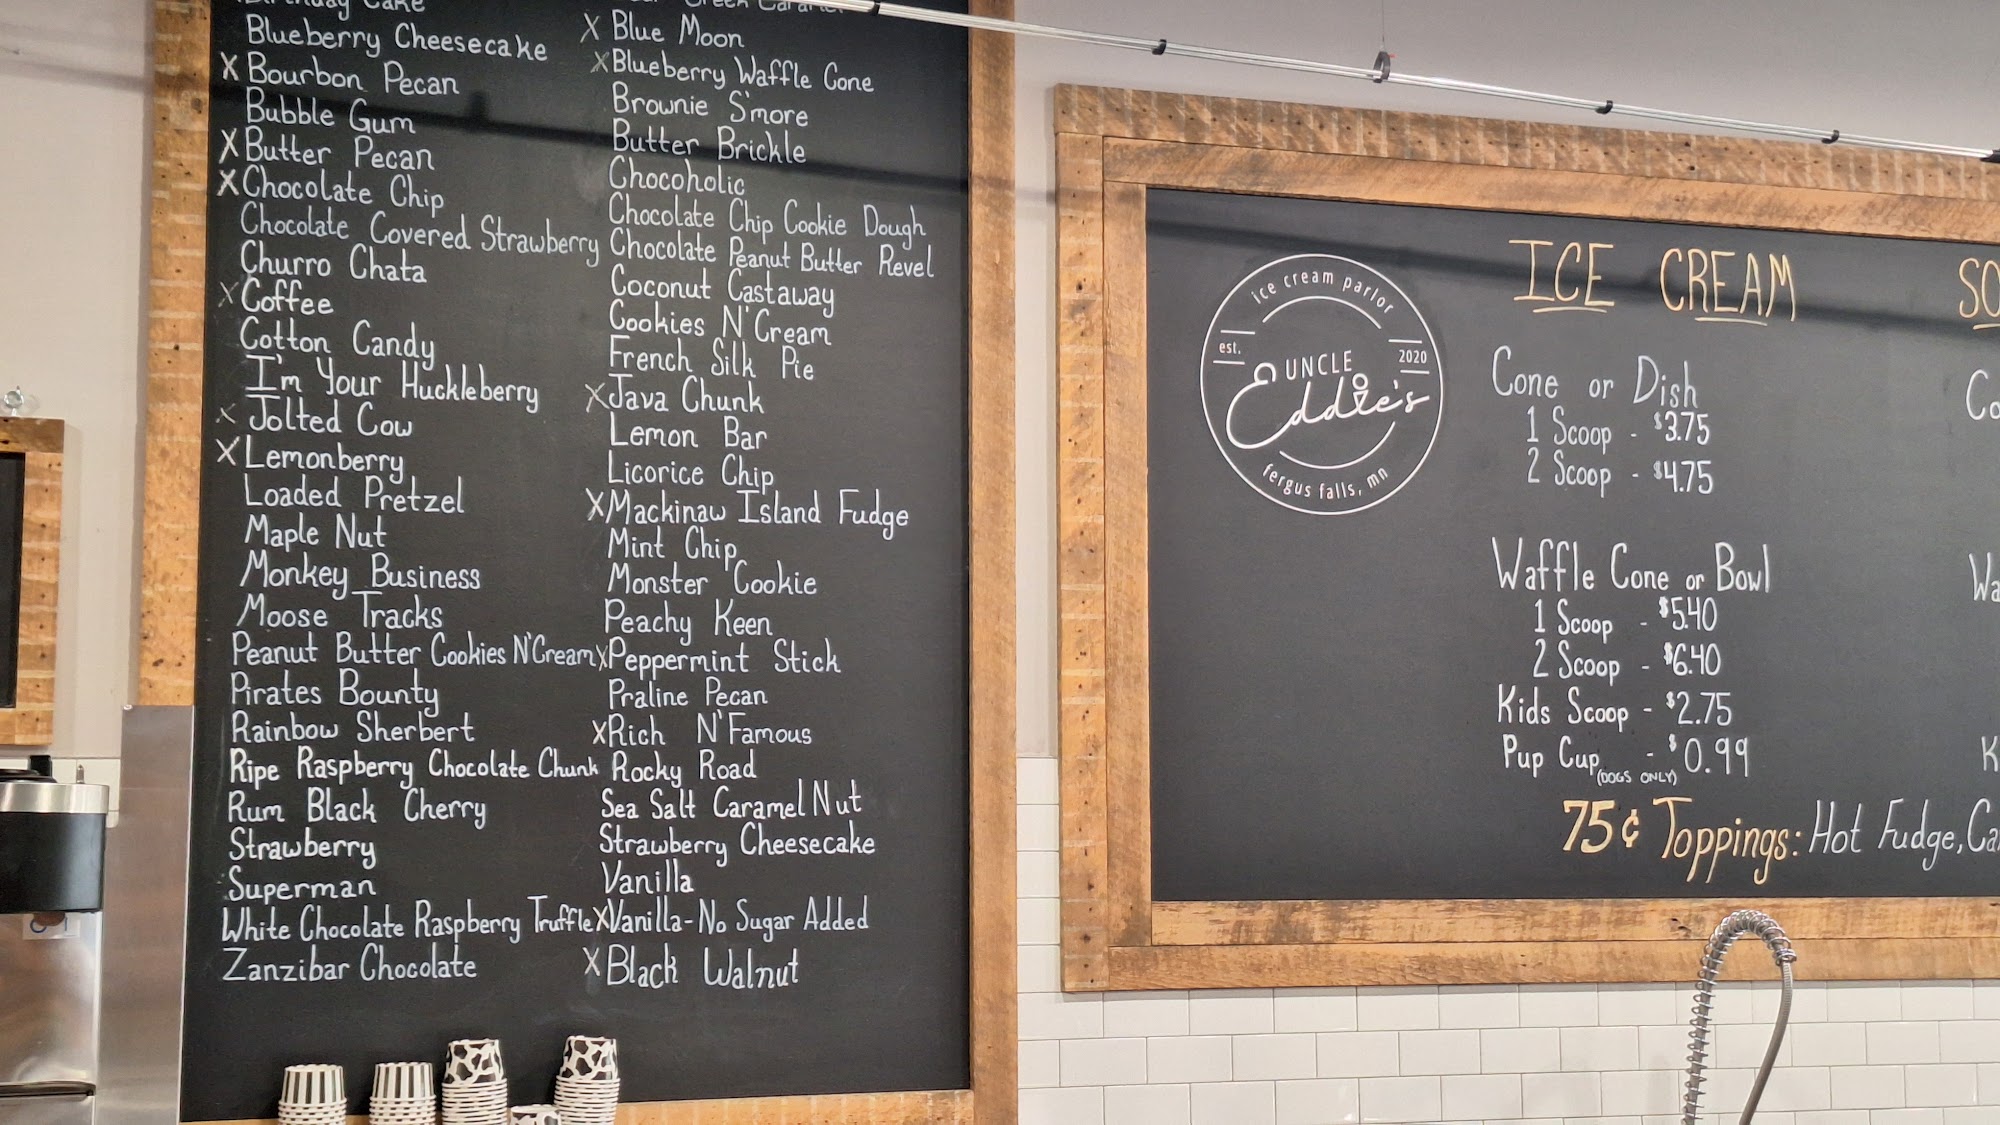 Birthday Cake
Blueberry Cheesecake
X Bourbon Pecan
Bubble Gum
X Butter Pecan
X Chocolate Chip
Chocolate Covered Strawberry
Churro Chata
X Coffee
Cotton Candy
I'm Your Huckleberry
X Jolted Cow
X Lemonberry
Loaded Pretzel
Maple Nut
Monkey Business
Moose Tracks
Peanut Butter Cookies N'Cream
Pirates Bounty
Rainbow Sherbert
Ripe Raspberry Chocolate Chunk
Rum Black Cherry
Strawberry
Superman
White Chocolate Raspberry Truffle
Zanzibar Chocolate
Creek Caramel
X Blue Moon
X Blueberry Waffle Cone
Brownie S'more
Butter Brickle
Chocoholic
Chocolate Chip Cookie Dough
Chocolate Peanut Butter Revel
Coconut Castaway
Cookies N'Cream
French Silk Pie
X Java Chunk
Lemon Bar
Licorice Chip
X Mackinaw Island Fudge
Mint Chip
Monster Cookie
Peachy Keen
X Peppermint Stick
Praline Pecan
X Rich N'Famous
Rocky Road
Sea Salt Caramel Nut
Strawberry Cheesecake
Vanilla
X Vanilla-No Sugar Added
X Black Walnut
ice cream parlor
est. 2020
UNCLE
Eddie's
fergus falls, mn
ICE CREAM
Cone or Dish
1 Scoop - $3.75
2 Scoop - $4.75
Waffle Cone or Bowl
1 Scoop - $5.40
2 Scoop - $6.40
Kids Scoop - $2.75
Pup Cup - $0.99
(DOGS ONLY)
75¢ Toppings: Hot Fudge,